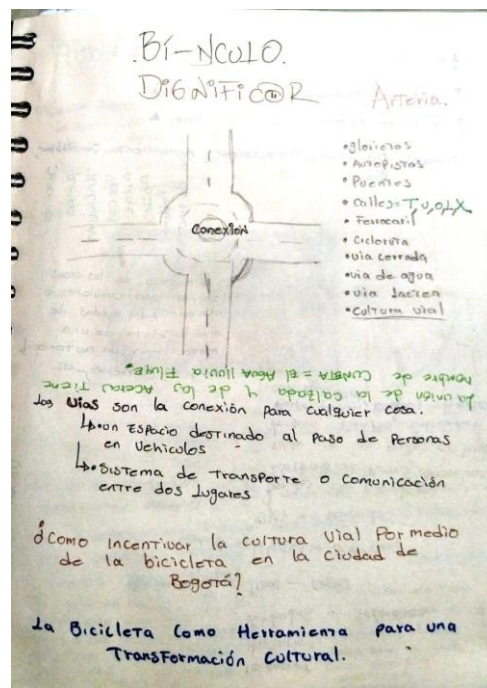 .BÍ-NCULO.
DIGNIFICAR
Arteria.
•glorietas
•Autopistas
•Puentes
•Calles=T,U,O,L,X
•Ferrocaril
•Cicloruta
•via cerrada
•via de agua
•via lactea
•Cultura vial
Conexión
La unión de la calzada y de las Aceras Tiene
nombre de CUNETA = El Agua lluvia Fluye.
Las Vías son la conexión para cualquier cosa.
↳•un ESPacio destinado al paso de Personas
en vehículos
↳•Sistema de Transporte o comunicación
entre dos lugares
¿Como Incentivar la cultura vial Por medio
de la bicicleta en la ciudad de
Bogotá?
La Bicicleta Como Herramienta para una
Transformación Cultural.